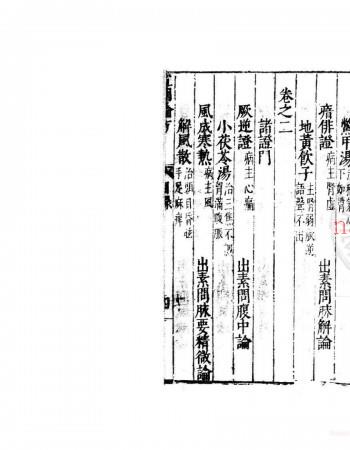 鱉甲湯
瘖痱證 病主腎虛 出素問脉解論
地黃飲子 主腎弱厥逆
語聲不出
卷之二
諸證門
厥逆證 病主心痛 出素問腹中論
小茯苓湯 治三焦不
滿
風成寒熱 病主風 出素問脉要精微論
解風散 治頭目昏眩
手足麻痺